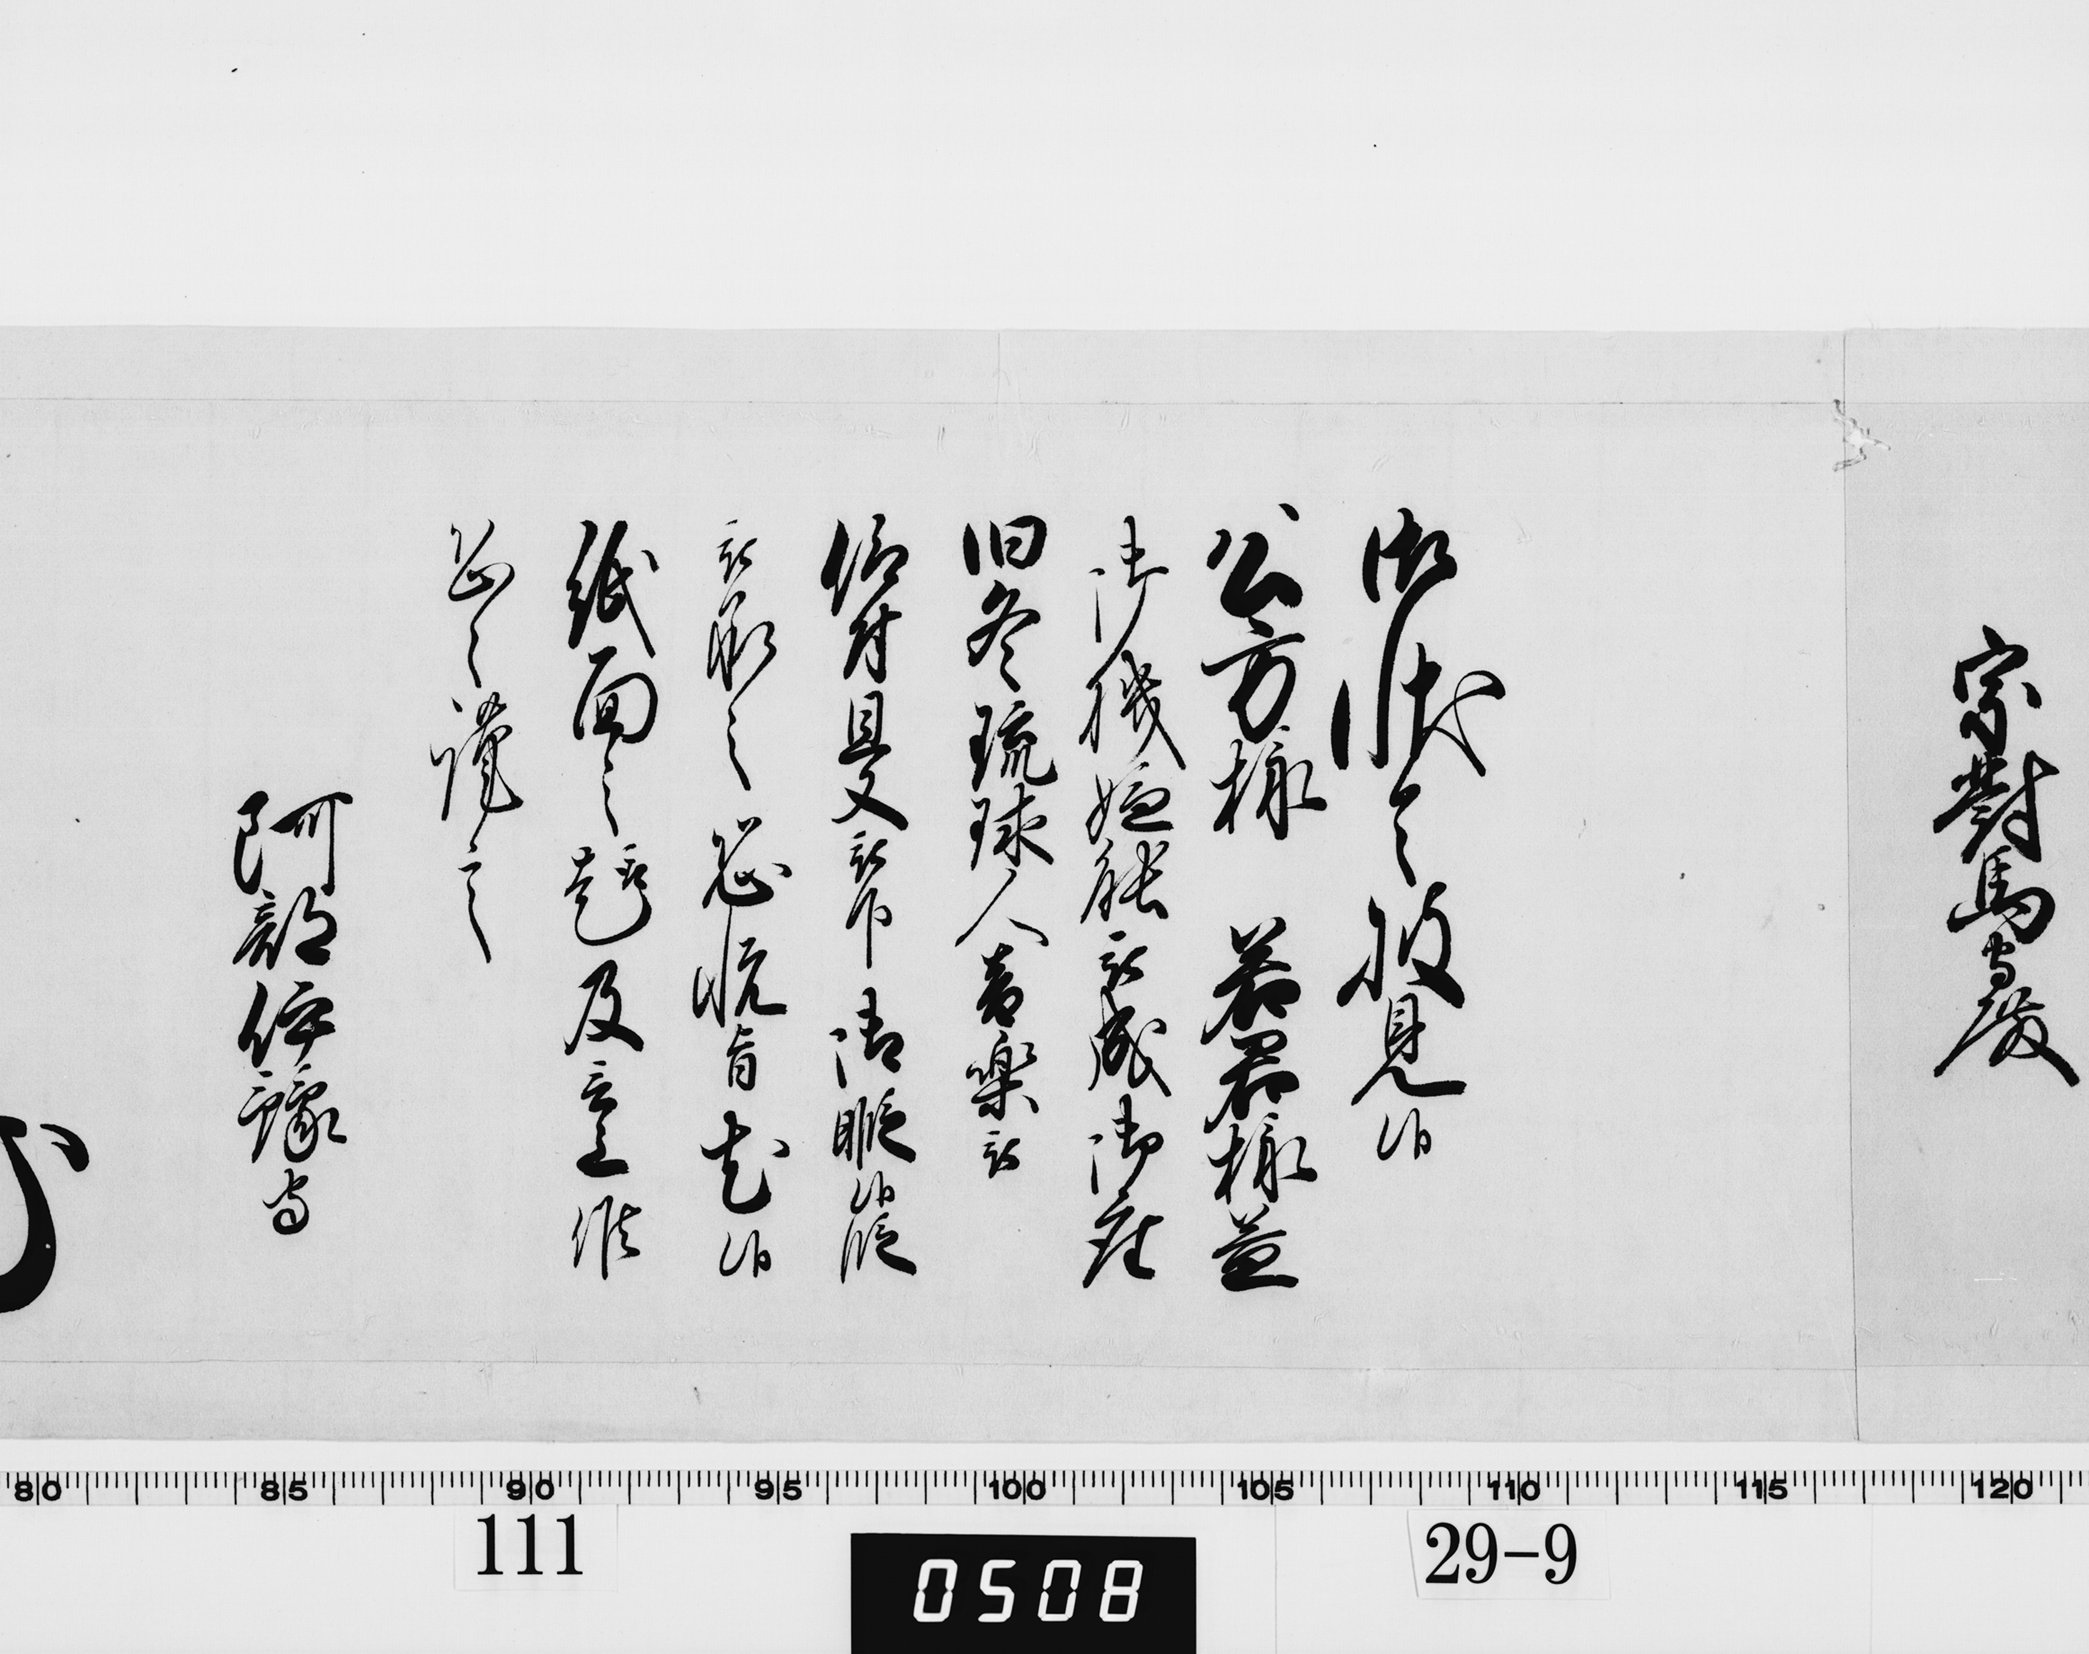 宗對馬守殿
御状令披見候
公方様　若君様益
御機嫌能被成御座
旧冬琉球人音楽被
仰付且又被下御暇候段
被承之恐悦旨尤候
紙面之趣及言上候
恐々謹言
阿部伊豫守
80 85 90 95 100 105 110 115 120
111
0508
29-9